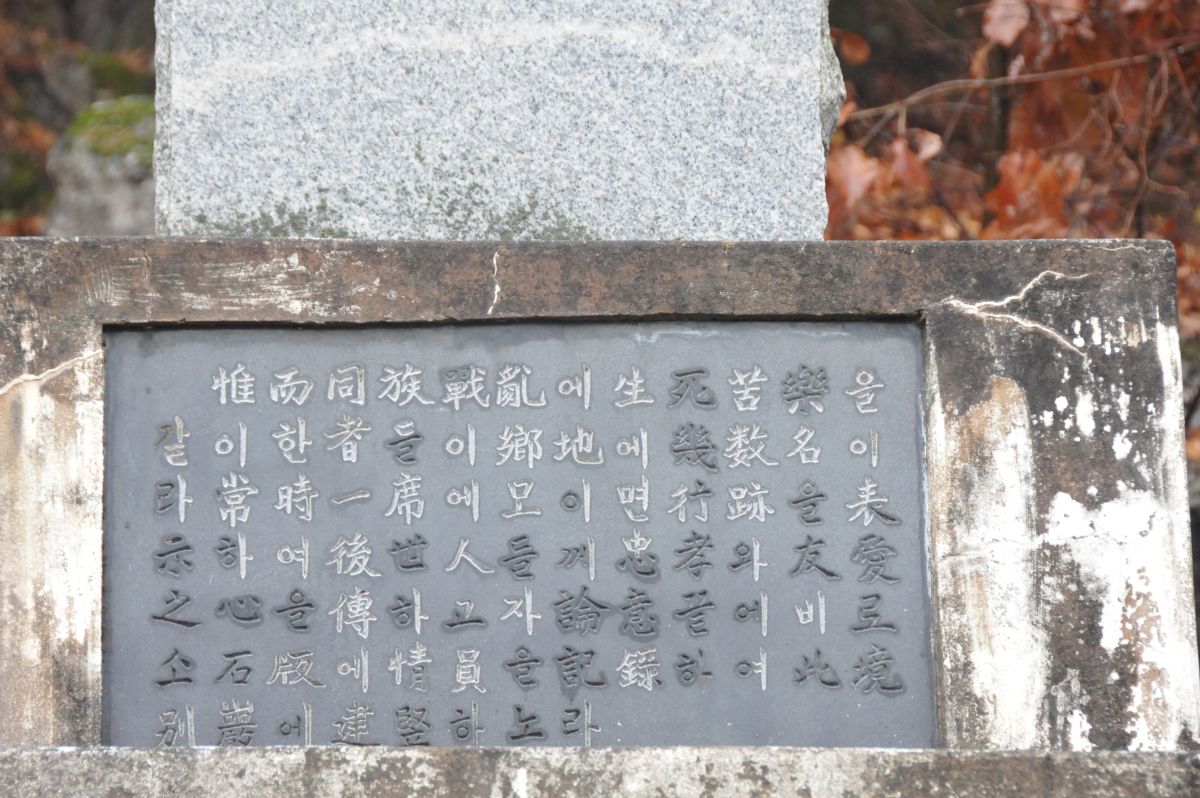 을이表愛里境
樂名을友비此
苦数跡와에여
死幾行孝끝하
生에면忠意錄
에地이께論記라
亂鄕모들자을노
戰이에人고員하
族을席世하情竪
同者一後傳에建
而한時여을版에
惟이常하心石巖
갈라示之소別